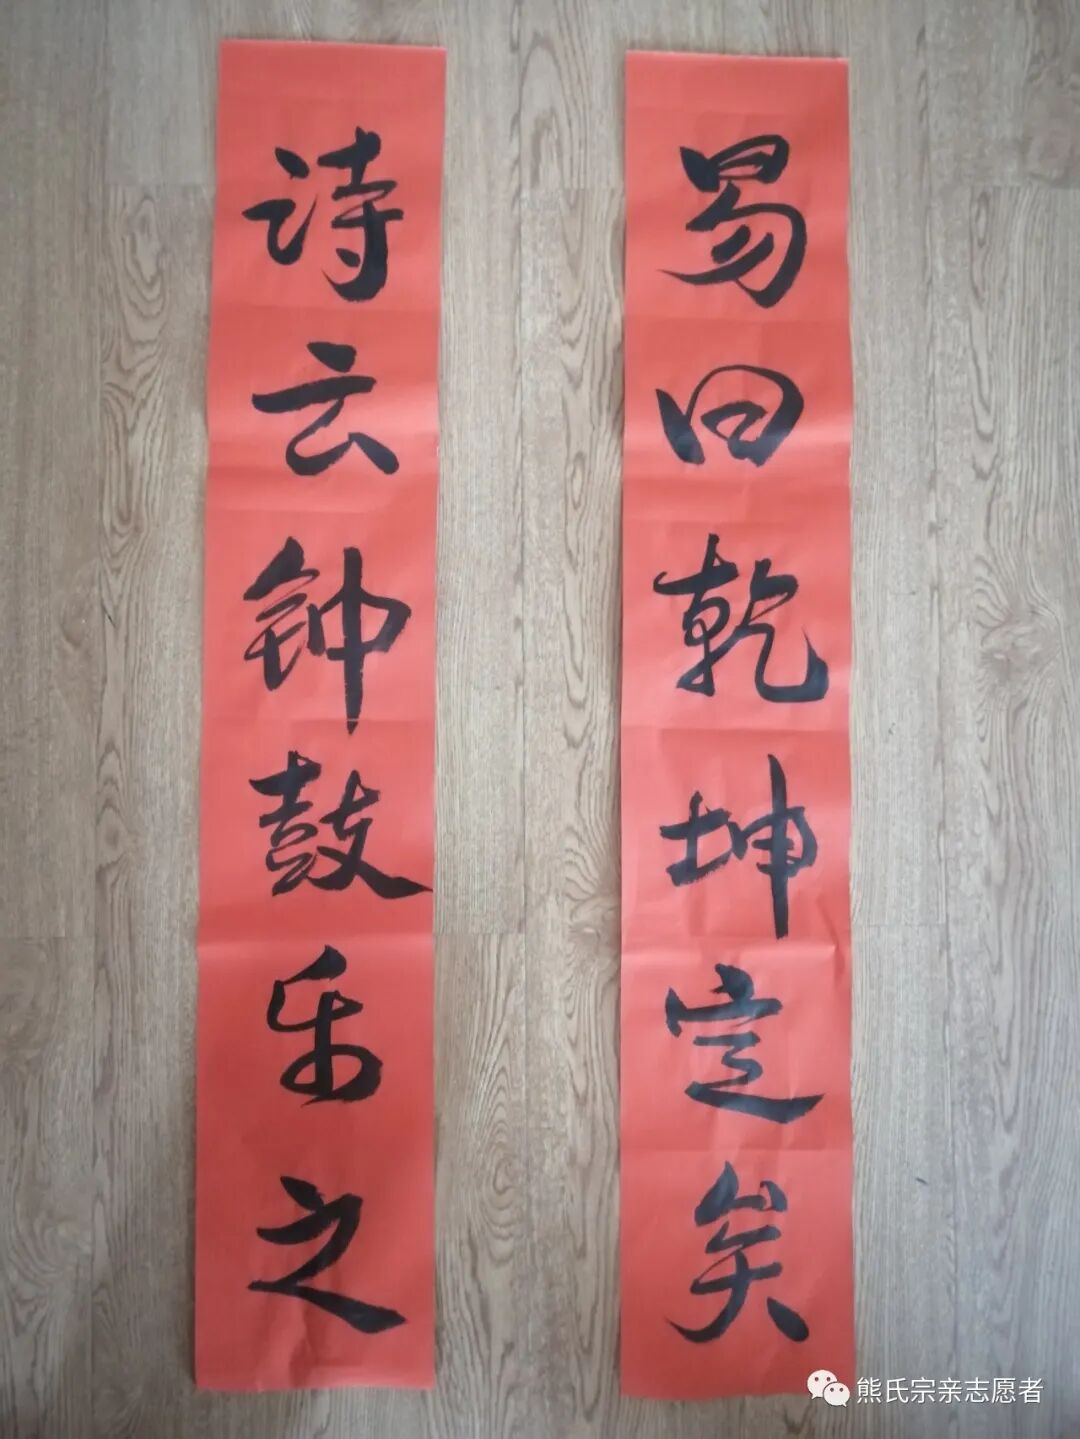 易曰乾坤定矣
诗云钟鼓乐之
熊氏宗亲志愿者